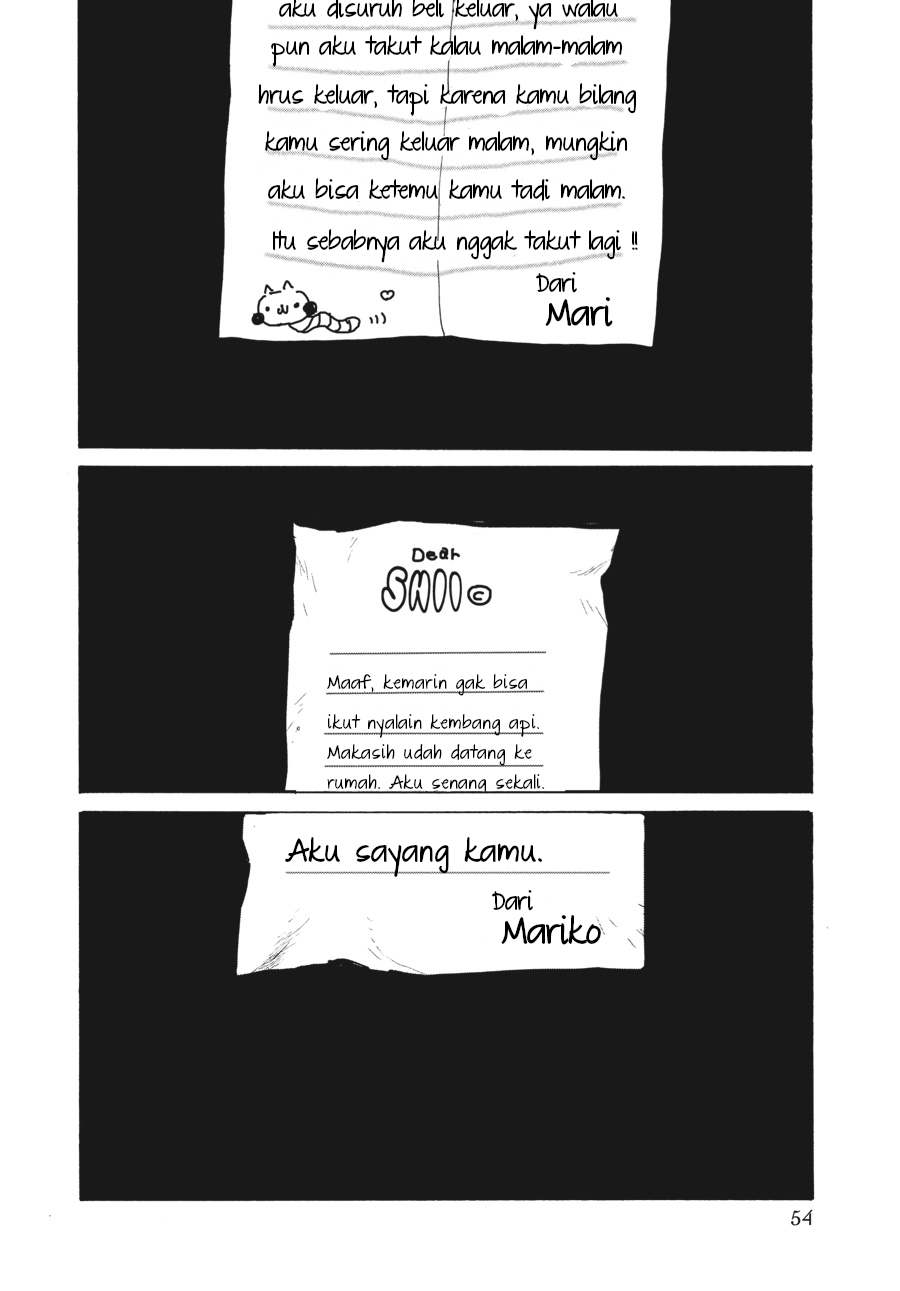 aku disuruh beli keluar, ya walau
pun aku takut kalau malam-malam
hrus keluar, tapi karena kamu bilang
kamu sering keluar malam, mungkin
aku bisa ketemu kamu tadi malam.
Itu sebabnya aku nggak takut lagi !!
Dari
Mari
Dear
SHII ©
Maaf, kemarin gak bisa
ikut nyalain kembang api.
Makasih udah datang ke
rumah. Aku senang sekali.
Aku sayang kamu.
Dari
Mariko
54